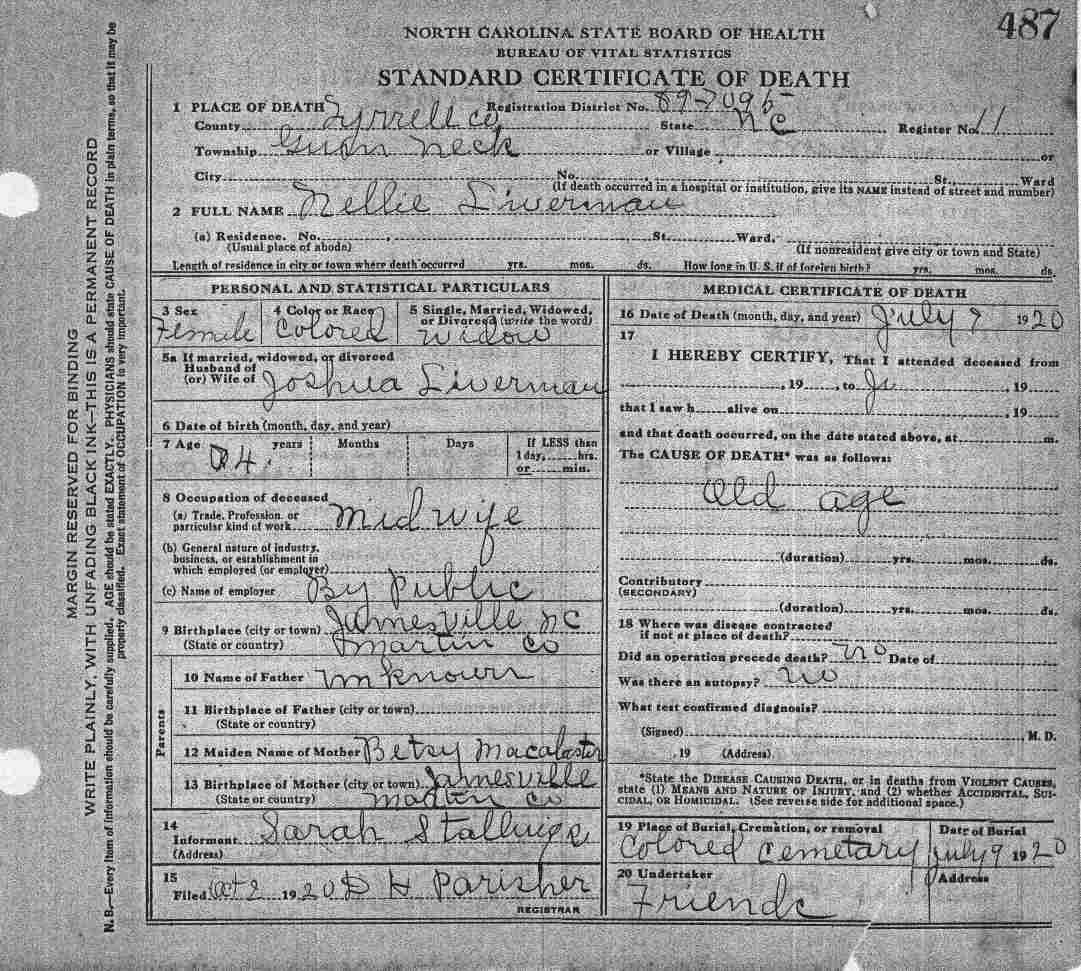 487
NORTH CAROLINA STATE BOARD OF HEALTH
BUREAU OF VITAL STATISTICS
STANDARD CERTIFICATE OF DEATH
1 PLACE OF DEATH Registration District No. 89-7095
County Tyrrell Co State NC Register No. 11
Township Gum Neck or Village or
City No. St., Ward
(If death occurred in a hospital or institution, give its NAME instead of street and number)
2 FULL NAME Nellie Liverman
(a) Residence. No. , St. Ward,
(Usual place of abode) (If nonresident give city or town and State)
Length of residence in city or town where death occurred yrs. mos. ds. How long in U. S. if of foreign birth? yrs. mos. ds.
PERSONAL AND STATISTICAL PARTICULARS
3 Sex 4 Color or Race 5 Single, Married, Widowed,
or Divorced (write the word)
Female Colored Widow
5a If married, widowed, or divorced
Husband of
(or) Wife of Joshua Liverman
6 Date of birth (month, day, and year)
7 Age years Months Days If LESS than
1 day, hrs.
or min.
4
8 Occupation of deceased
(a) Trade, Profession, or
particular kind of work Midwife
(b) General nature of industry,
business, or establishment in
which employed (or employer)
(c) Name of employer By Public
9 Birthplace (city or town) Jamesville NC
(State or country) Martin Co
Parents
10 Name of Father unknown
11 Birthplace of Father (city or town)
(State or country)
12 Maiden Name of Mother Betsy Macalaster
13 Birthplace of Mother (city or town) Jamesville
(State or country) Martin Co
14
Informant Sarah Stallings
(Address)
15
Filed Oct 2 1920 D H Parisher
REGISTRAR
MEDICAL CERTIFICATE OF DEATH
16 Date of Death (month, day, and year) July 7 1920
17
I HEREBY CERTIFY, That I attended deceased from
, 19 , to Ju , 19
that I saw h alive on , 19
and that death occurred, on the date stated above, at m.
The CAUSE OF DEATH* was as follows:
Old age
(duration) yrs. mos. ds.
Contributory
(SECONDARY)
(duration) yrs. mos. ds.
18 Where was disease contracted
if not at place of death?
Did an operation precede death? no Date of
Was there an autopsy? no
What test confirmed diagnosis?
(Signed) , M. D.
, 19 (Address)
*State the DISEASE CAUSING DEATH, or in deaths from VIOLENT CAUSES,
state (1) MEANS AND NATURE OF INJURY, and (2) whether ACCIDENTAL, SUI-
CIDAL, OR HOMICIDAL. (See reverse side for additional space.)
19 Place of Burial, Cremation, or removal Date of Burial
Colored Cemetary July 9 1920
20 Undertaker Address
Friends
MARGIN RESERVED FOR BINDING
WRITE PLAINLY, WITH UNFADING BLACK INK—THIS IS A PERMANENT RECORD
N. B.—Every item of information should be carefully supplied. AGE should be stated EXACTLY. PHYSICIANS should state CAUSE OF DEATH in plain terms, so that it may be
properly classified. Exact statement of OCCUPATION is very important.